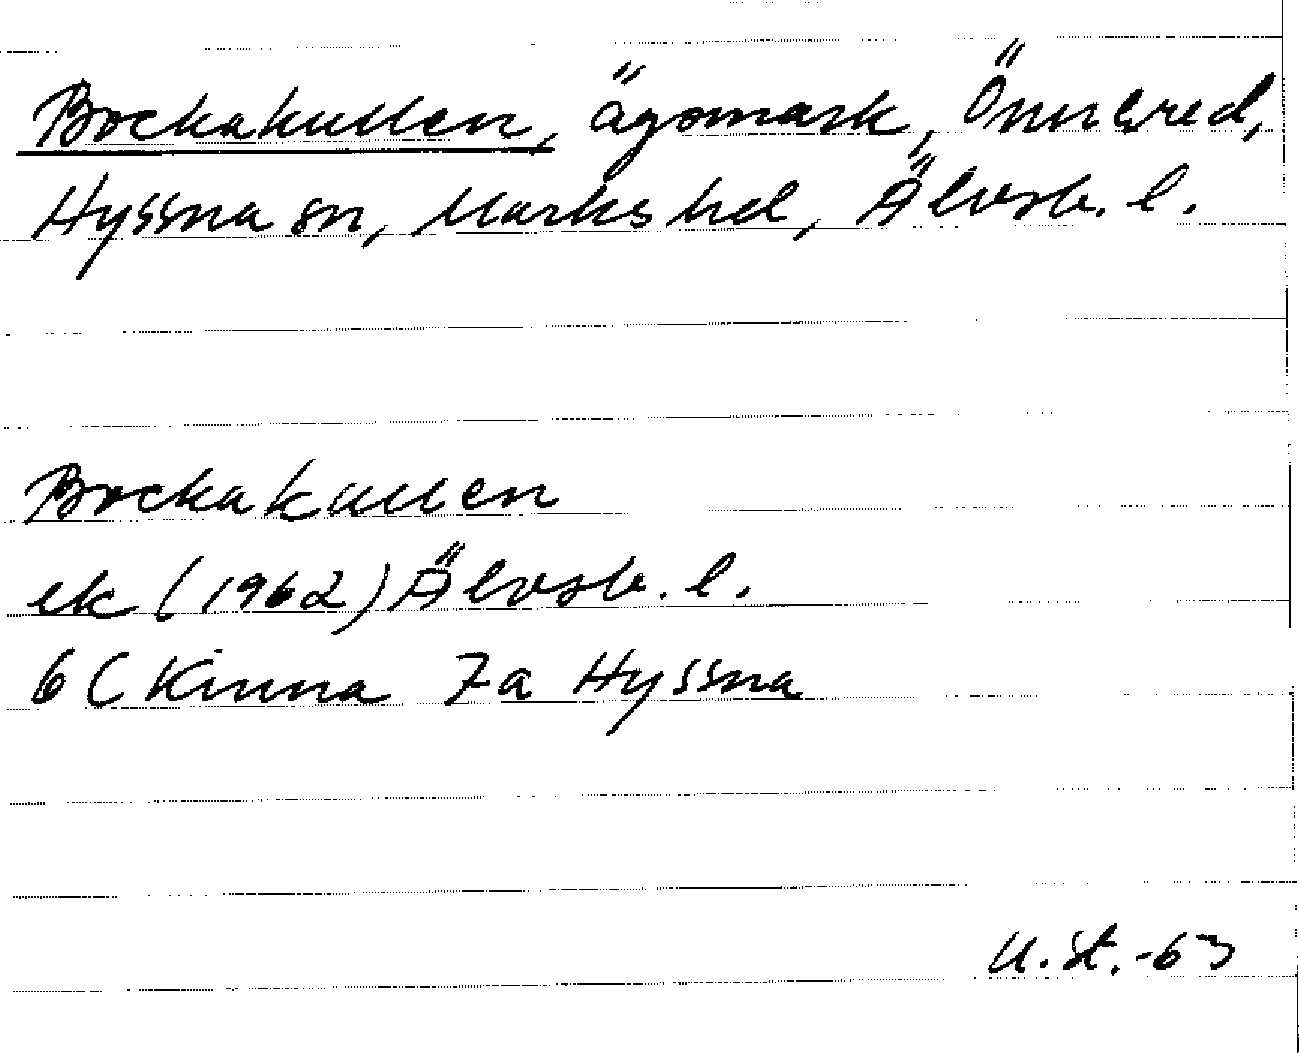 Bockakullen, ägomark, Önnered,
Hyssna sn, Marks hd, Älvsb. l.
Bockakullen
ek (1962) Älvsb. l.
6 C Kinna 7a Hyssna
U. St. -63